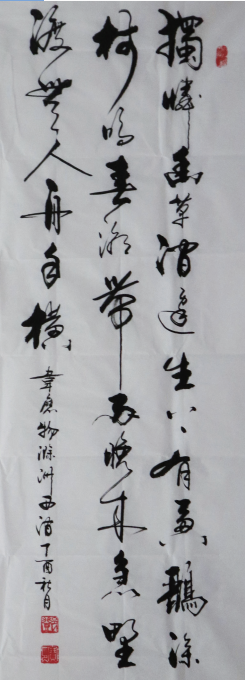 獨憐幽草澗邊生上有黃鸝深
樹鳴春潮帶雨晚來急野
渡無人舟自橫
韋應物滁州西澗丁酉秋月